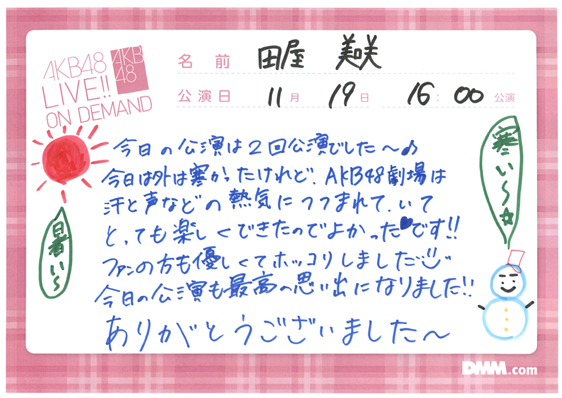 AKB48
LIVE!!
ON DEMAND
AKB
48
名前 田屋 美咲
公演日 11月 19日 16:00 公演
今日の公演は2回公演でした〜♪
今日は外は寒かったけれど、AKB48劇場は
汗と声などの熱気につつまれていて
とっても楽しくできたのでよかった♥です!!
ファンの方も優しくてホッコリしました
今日の公演も最高の思い出になりました!!
ありがとうございました〜
暑い〜
寒い〜☆
DMM.com